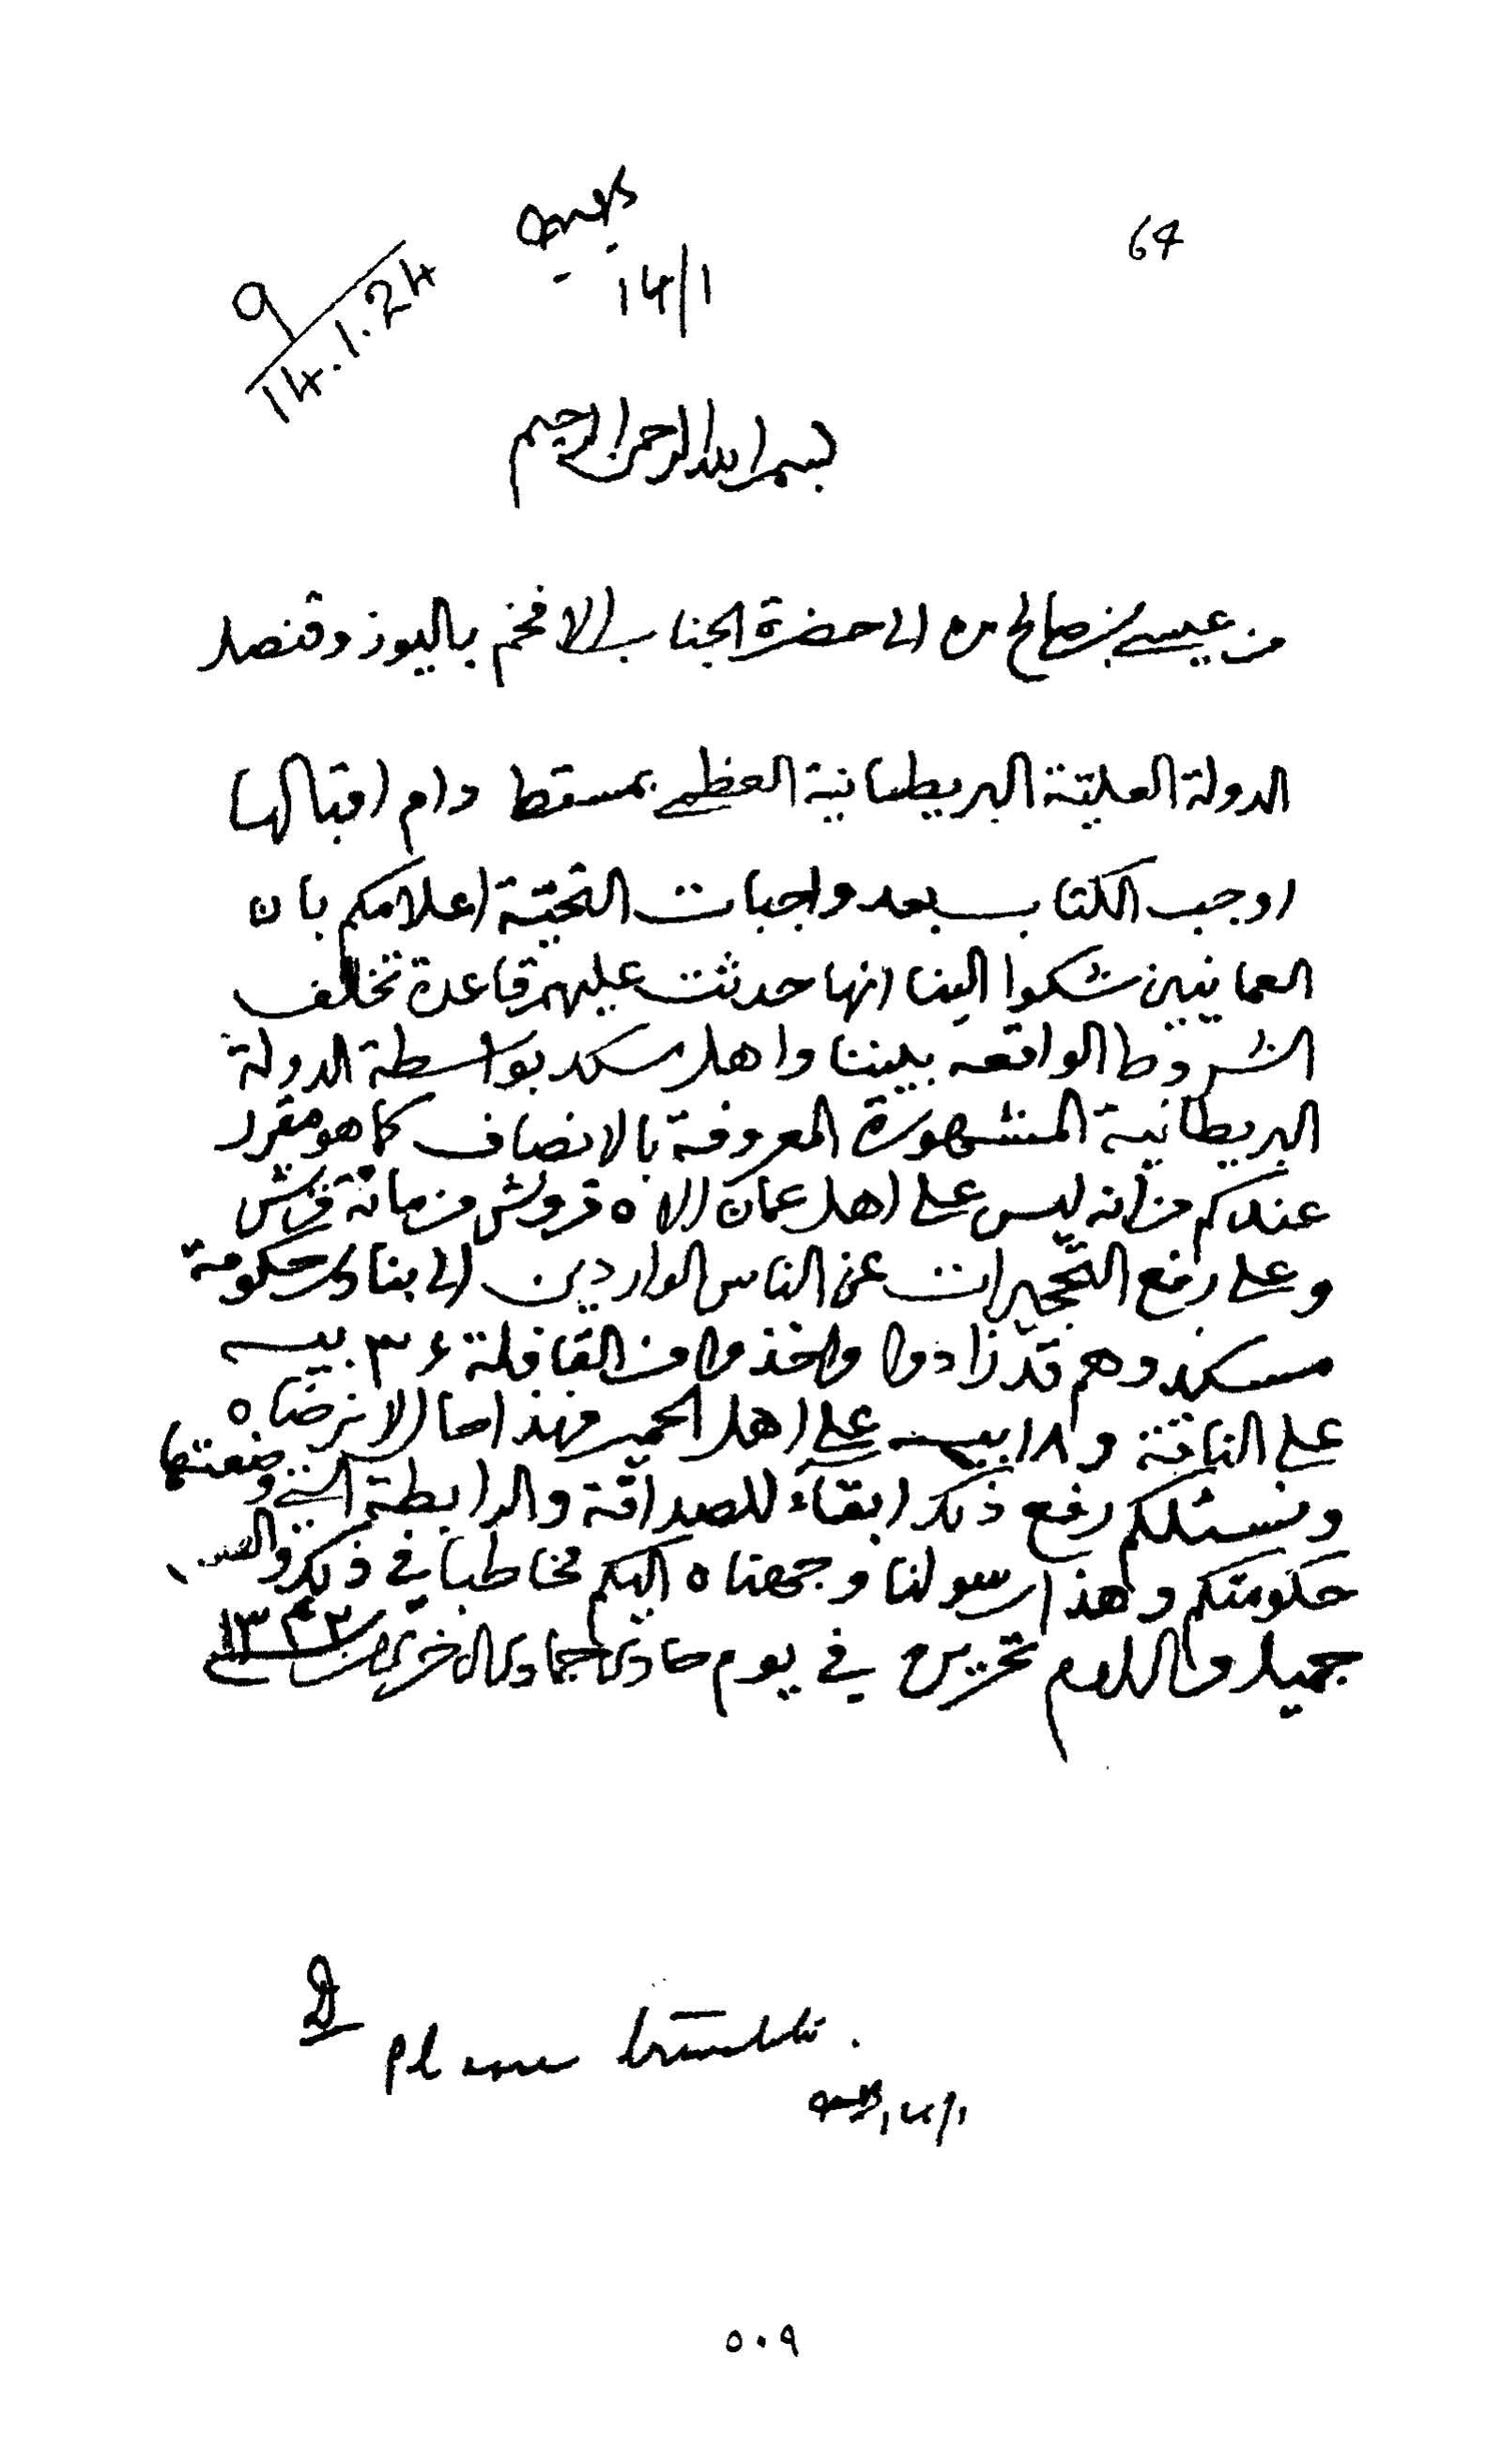 64
14/1
9
14.1.24
بسم الله الرحمن الرحيم
من عيسى بن صالح الى حضرة الجناب الافخم باليوز وقنصل
الدولة العلية البريطانية العظمى بمسقط دام اقبالها
اوجب الكتاب بعد واجبات التحية اعلامكم بان
العمانيين شكوا الينا انها حدثت عليهم قاعدة تخلف
الشروط الواقعه بيننا واهل مسكد بواسطة الدولة
البريطانية المشهورة المعروفة بالانصاف كما هو مقرر
عندكم من انه ليس على اهل عمان الا ٥ قروش من مائة قرش
وعلى رفع التحجيرات عن الناس الواردين الى بنادر حكومة
مسكد وهم قد زادوا واخذوا من القافلة ٣٦ بيسه
على الناقة و ١٨ بيسه على اهل الحمير فهذا حال لا نرضاه
ونسئلكم رفع ذلك ابقاء للصداقة والرابطة التي وضعتها
حكومتكم وهذا رسولنا وجهناه اليكم مخاطبا في ذلك والصبر
جميل والسلام تحريرا في يوم حادي جمادى الاخرى سنة ١٣٤٢
Please translate.
14/1
٥٠٩